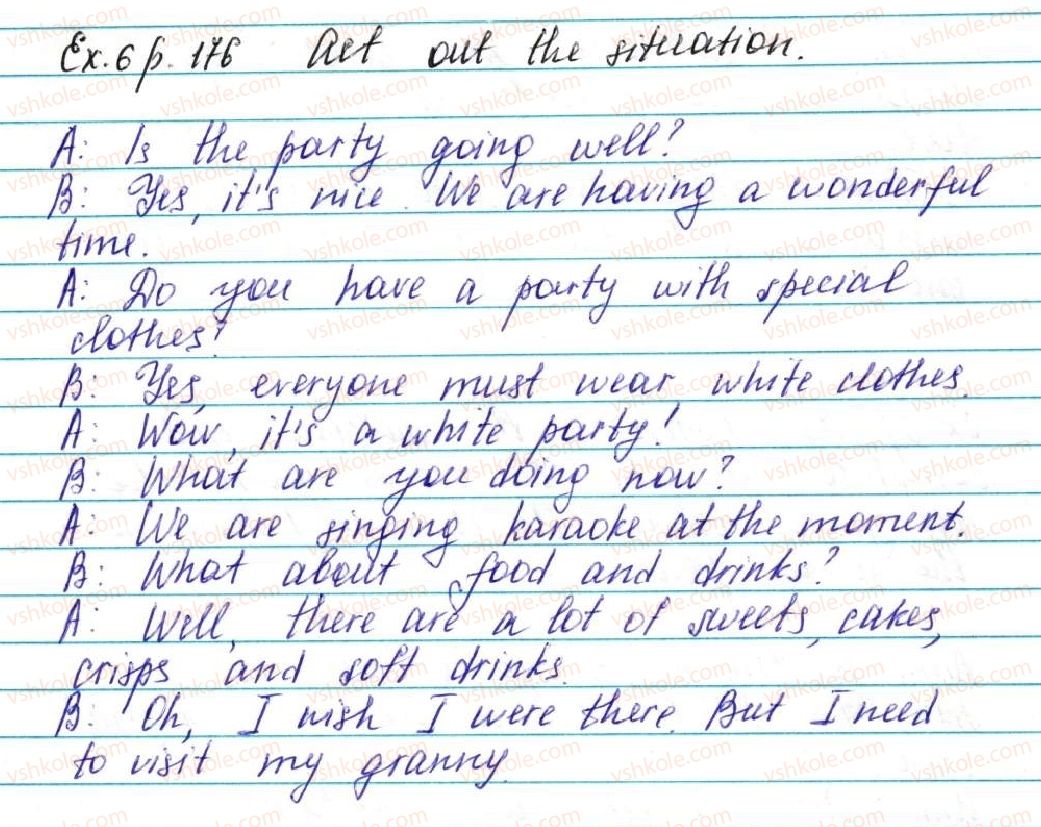 Ex. 6 p. 176 Act out the situation.
A: Is the party going well?
B: Yes, it's nice. We are having a wonderful
time.
A: Do you have a party with special
clothes?
B: Yes, everyone must wear white clothes.
A: Wow, it's a white party!
B: What are you doing now?
A: We are singing karaoke at the moment.
B: What about food and drinks?
A: Well, there are a lot of sweets, cakes,
crisps and soft drinks.
B: Oh, I wish I were there. But I need
to visit my granny.